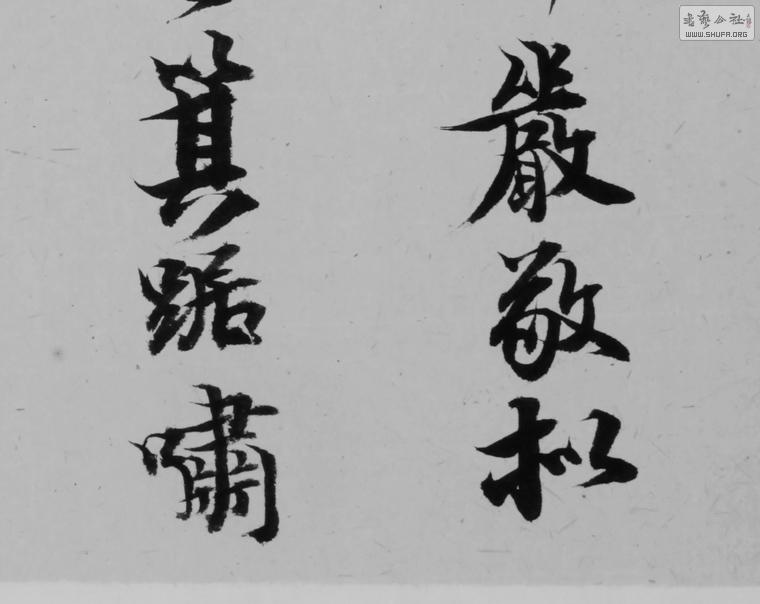 嚴敬拟
箕踞嘯
書藝公社
WWW.SHUFA.ORG